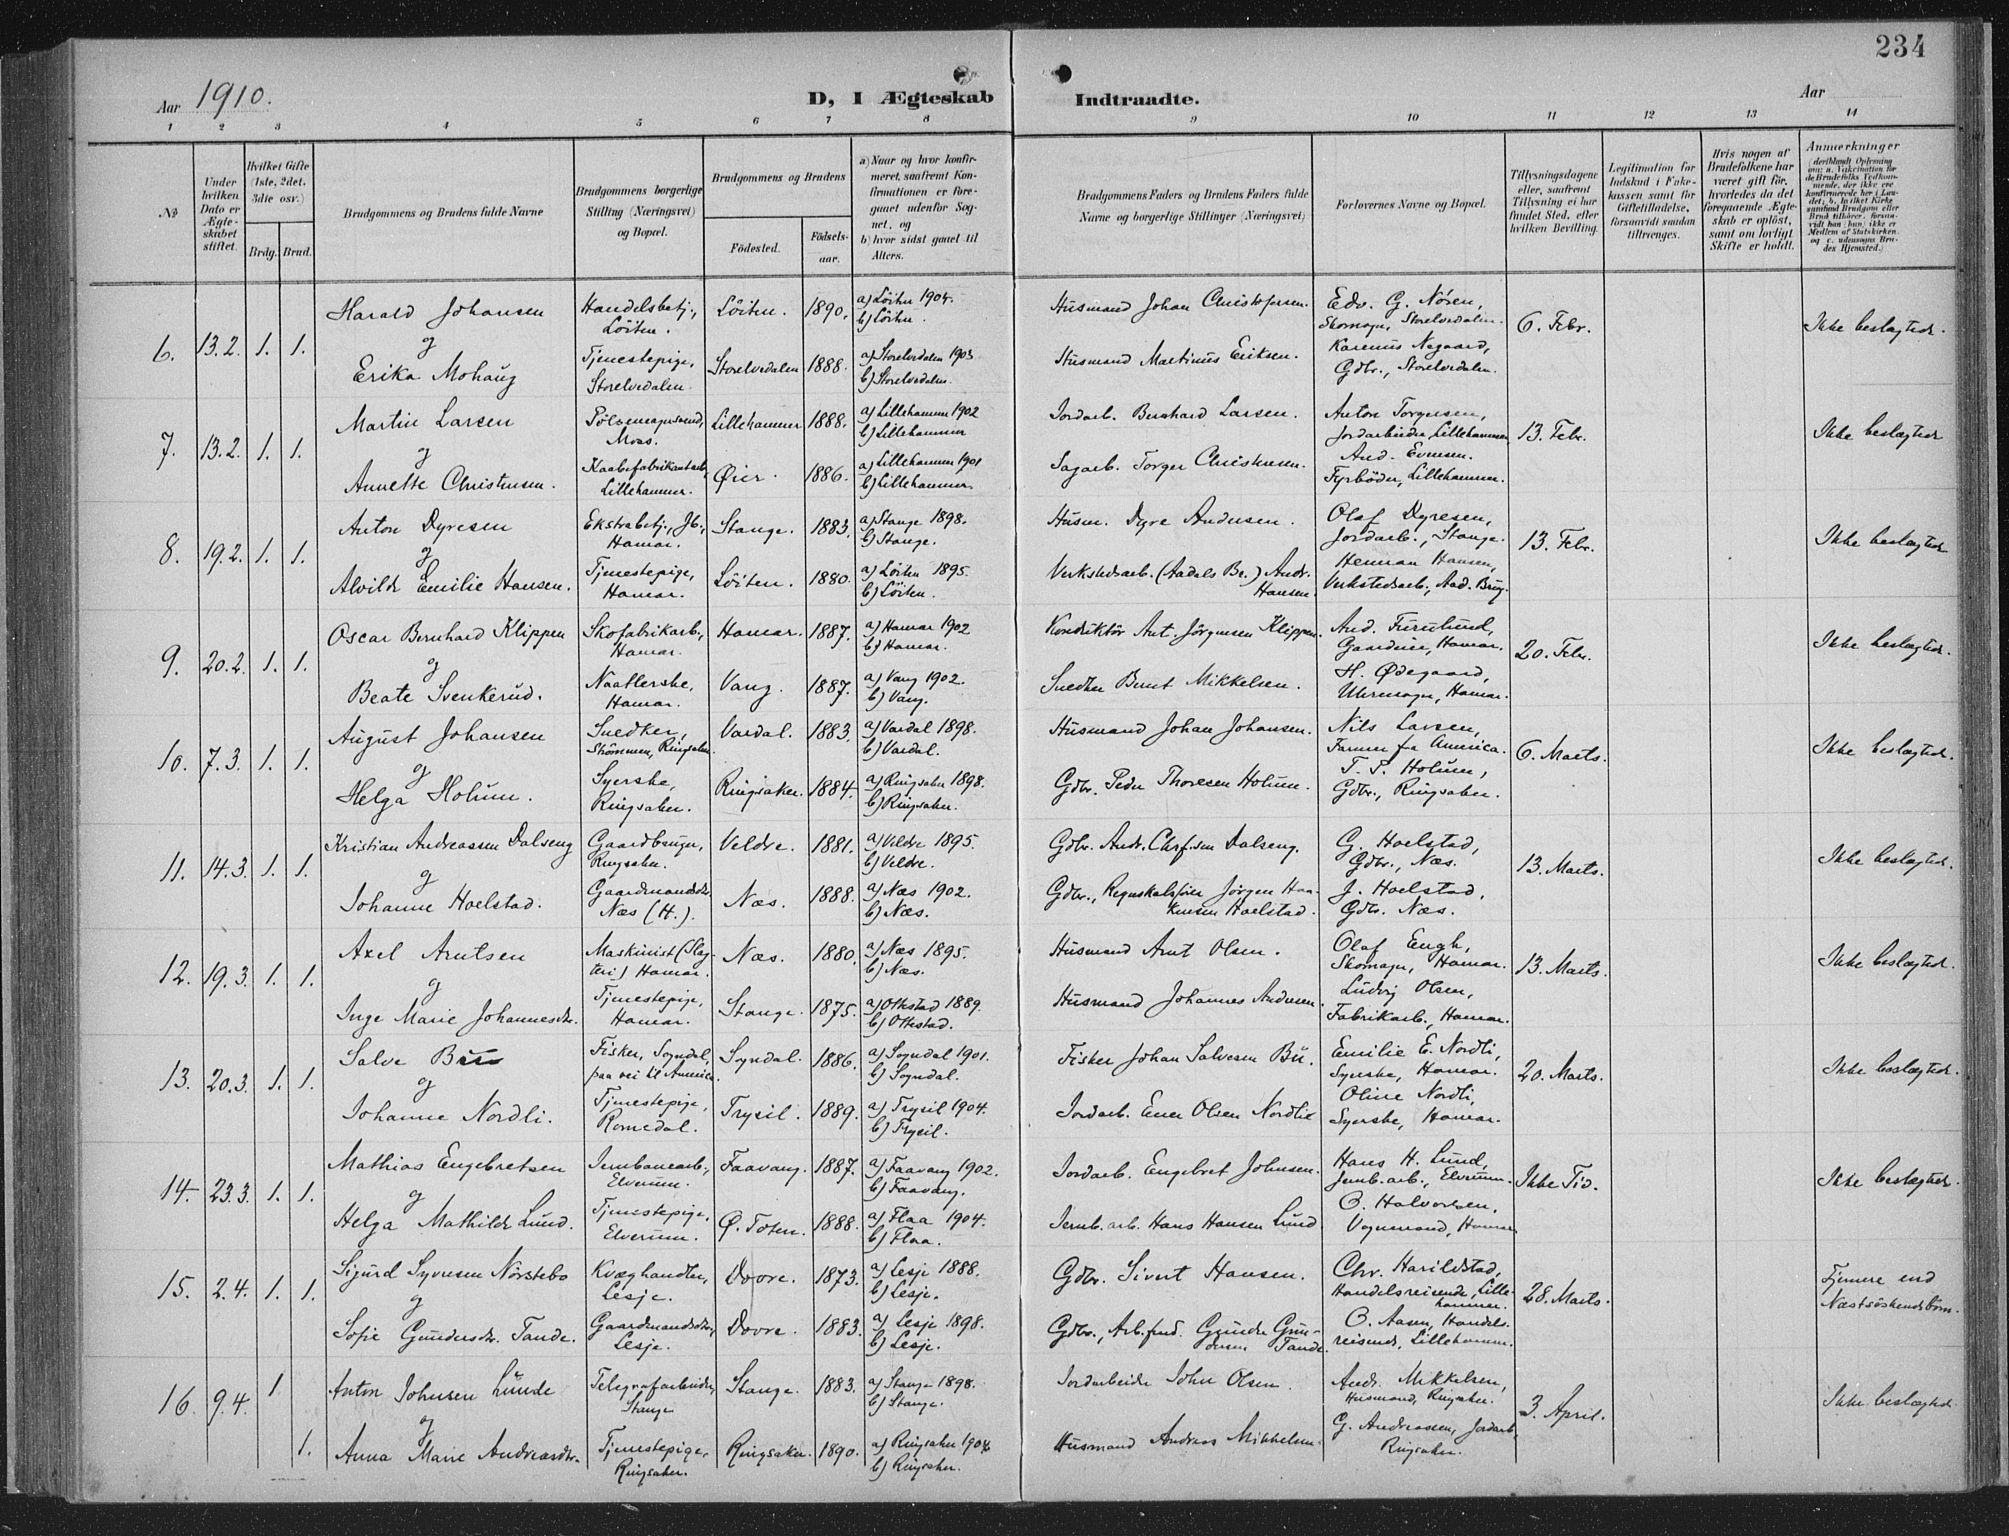 234
Aar 1910.
D, I Ægteskab Indtraadte.
Aar
1 2 3 4 5 6 7 8 9 10 11 12 13 14
No
Under hvilken Dato er Ægteskabet stiftet.
Hvilket Gifte (1ste, 2det, 3die osv.)
Brdg. Brud.
Brudgommens og Brudens fulde Navne
Brudgommens borgerlige Stilling (Næringsvei) og Bopæl.
Brudgommens og Brudens
Fødested.
Fødselsaar.
a) Naar og hvor konfirmeret, saafremt Konfirmationen er foregaaet udenfor Sognet, og
b) hvor sidst gaaet til Alters.
Brudgommens Faders og Brudens Faders fulde Navne og borgerlige Stillinger (Næringsvei)
Forlovernes Navne og Bopæl.
Tillysningsdagene eller, saafremt Tillysning ei har fundet Sted, efter hvilken Bevilling.
Legitimation for Indskud i Enkekassen samt for Giftetilladelse, forsaavidt saadan tiltrænges.
Hvis nogen af Brudefolkene har været gift før, hvorledes da det foregaaende Ægteskab er opløst, samt om lovligt Skifte er holdt.
Anmerkninger
6. 13.2. 1. 1.
Harald Johansen
og
Erika Mohaug
Handelsbetj., Löiten.
Tjenestepige, Storelvedalen.
Löiten. 1890. a) Löiten 1904. b) Löiten.
Storelvedalen 1888. a) Storelvedalen 1903 b) Storelvedalen.
Husmand Johan Christofersen.
Husmand Martinus Eriksen.
Edv. G. Nören, Skomager, Storelvedalen.
Karenus Negaard, Gdbr., Storelvedalen.
6. Febr.
Ikke beslægtede.
7. 13.2. 1. 1.
Martin Larsen
og
Annette Christensen.
Pölsemagersvend, Moss.
Lillehammer.
Lillehammer 1888. a) Lillehammer 1902 b) Lillehammer
Øier. 1886. a) Lillehammer 1901 b) Lillehammer
Jordarb. Bernhard Larsen.
Sagarb. Torger Christensen.
Anton Torgersen, Jordarbeider, Lillehammer
And. Evensen. Fyrbøder, Lillehammer.
13. Febr.
Ikke beslægtede
8. 19.2. 1. 1.
Anton Dyresen
og
Alvilde Emilie Hansen.
Ekstrabetj., Jb., Hamar.
Tjenestepige, Hamar.
Stange. 1883. a) Stange 1898. b) Stange.
Löiten. 1880. a) Löiten 1895. b) Löiten.
Husm. Dyre Andersen.
Verkstedsarb. (Aadals Br.) Andr. Hansen.
Olaf Dyresen, Jordarb., Stange.
Herman Hansen, Verkstedsarb., Aad. Brug.
13. Febr.
Ikke beslægtede
9. 20.2. 1. 1.
Oscar Bernhard Klippen
og
Beate Svenkerud.
Skofabrikarb., Hamar.
Naatlerske, Hamar.
Hamar. 1887. a) Hamar 1902 b) Hamar.
Vang. 1887. a) Vang 1902. b) Vang.
Konduktör Ant. Jörgensen Klippen.
Snedker Bernt Mikkelsen.
And. Furulund, Gaardeier, Hamar.
H. Ødegaard, Uhrmager, Hamar.
20. Febr.
Ikke beslægtede.
10. 7.3. 1. 1.
August Johansen
og
Helga Holum.
Snedker, Strömmen, Ringsaker
Syerske, Ringsaker.
Vardal. 1883. a) Vardal 1898. b) Vardal.
Ringsaker. 1884. a) Ringsaker 1898. b) Ringsaker.
Husmand Johan Johansen.
Gdbr. Peder Thoresen Holum.
Nils Larsen, Farmer fra America.
T. P. Holum, Gdbr., Ringsaker.
6. Marts.
Ikke beslægtede.
11. 14.3. 1. 1.
Kristian Andreassen Dalseng
og
Johanne Hoelstad.
Gaardbruger, Ringsaker.
Gaardmandsdtr. Næs (H.).
Veldre. 1881. a) Veldre 1895. b) Veldre.
Næs. 1888. a) Næs 1902. b) Næs.
Gdbr. Andr. Chrf.sen Dalseng.
Gdbr., Regnskabsförer Jörgen Haakensen Hoelstad.
G. Hoelstad, Gdbr., Næs.
J. Hoelstad, Gdbr. Næs.
13. Marts.
Ikke beslægtede.
12. 19.3. 1. 1.
Axel Arntsen
og
Inge Marie Johannesdtr.
Maskinist (Slagteri) Hamar.
Tjenestepige, Hamar.
Næs. 1880. a) Næs 1895. b) Næs.
Stange. 1875. a) Ottestad 1889. b) Ottestad.
Husmand Arnt Olsen.
Husmand Johannes Andersen.
Olaf Engh, Skomager, Hamar.
Ludvig Olsen, Fabrikarb., Hamar.
13. Marts.
Ikke beslægtede.
13. 20.3. 1. 1.
Salve Bu
og
Johanne Nordli.
Fisker, Sogndal, paa vei til America.
Tjenestepige, Romedal.
Sogndal. 1886. a) Sogndal 1901. b) Sogndal.
Trysil. 1889. a) Trysil 1904. b) Trysil.
Fisker Johan Salvesen Bu.
Jordarb. Ener Olsen Nordlie
Emilie E. Nordli, Syerske, Hamar.
Oline Nordli, Syerske, Hamar.
20. Marts.
Ikke beslægtede.
14. 23.3. 1. 1.
Mathias Engebretsen
og
Helga Mathilde Lund.
Jernbanearb., Elverum.
Tjenestepige, Elverum.
Faavang. 1887. a) Faavang 1902. b) Faavang.
Ø. Toten. 1888. a) Flaa 1904. b) Flaa.
Jordarb. Engebret Johnsen.
Jernb. arb. Hans Hansen Lund
Hans H. Lund, Jernb. arb., Elverum.
O. Halvorsen, Vognmand, Hamar
Ikke Tid.
Ikke beslægtede.
15. 2.4. 1. 1.
Sigurd Syversen Nörstebo
og
Sofie Gundersdtr. Tande.
Kvæghandler, Lesje.
Gaardmandsdtr., Lesje.
Dovre. 1873. a) Lesje 1888. b) Lesje.
Dovre. 1883. a) Lesje 1898. b) Lesje.
Gdbr. Sivert Hansen.
Gdbr., Arb.fmd. Gunder Gundersen Tande.
Chr. Harildstad, Handelsreisende, Lillehammer.
O. Aasen, Handelsreisende, Lillehammer.
28. Marts.
Fjernere end Næstsöskendebörn.
16. 9.4. 1. 1.
Anton Johnsen Lunde
og
Anna Marie Andreasdtr.
Telegrafarbeider, Stange
Tjenestepige, Ringsaker.
Stange. 1883. a) Stange 1898. b) Stange.
Ringsaker. 1890. a) Ringsaker 1904 b) Ringsaker.
Jordarbeider John Olsen.
Husmand Andreas Mikkelsen.
Andr. Mikkelsen, Husmand, Ringsaker.
G. Andreassen, Jordarb., Ringsaker.
3. April.
Ikke beslægtede.